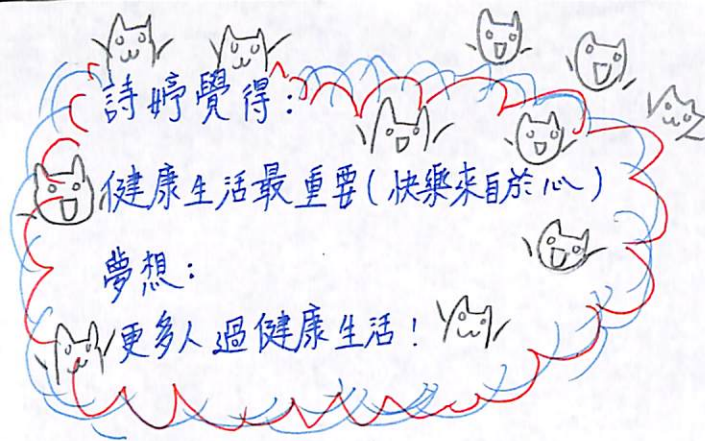 詩婷覺得：
健康生活最重要(快樂來自於心)
夢想：
更多人過健康生活！